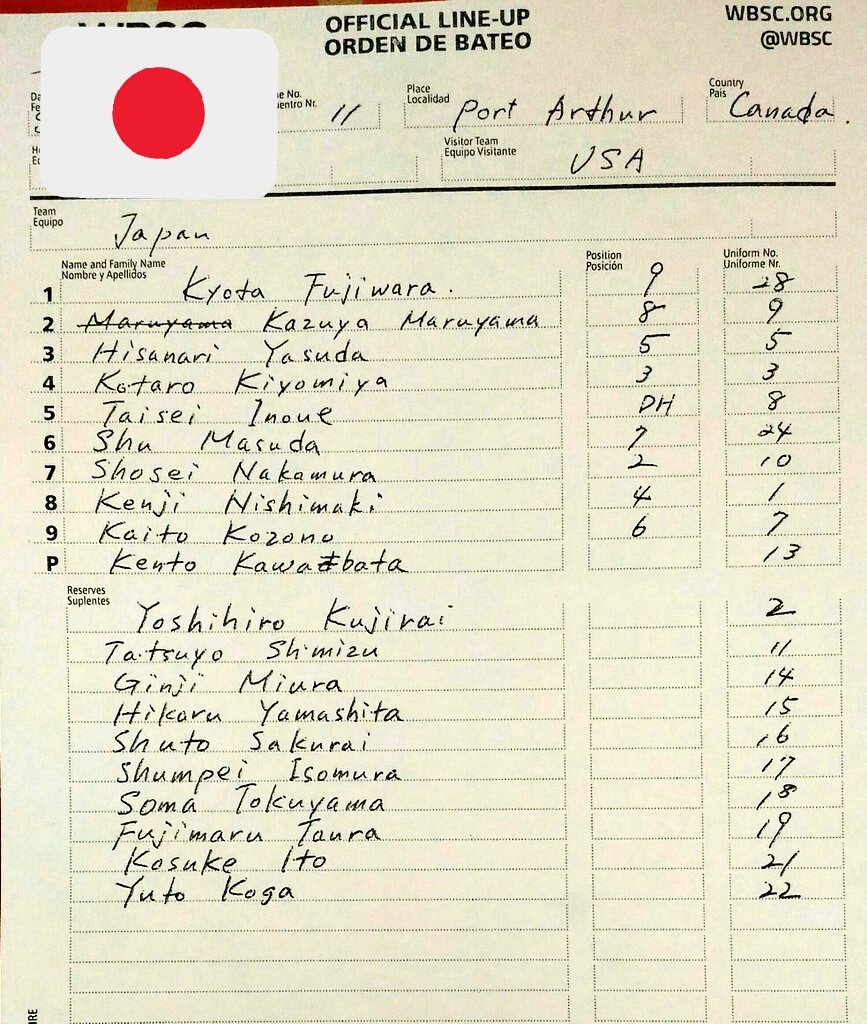 OFFICIAL LINE-UP
ORDEN DE BATEO
WBSC.ORG
@WBSC
11
Place
Localidad
Port Arthur
Country
Pais
Canada.
Visitor Team
Equipo Visitante
USA
Team
Equipo
Japan
Name and Family Name
Nombre y Apellidos
Position
Posición
Uniform No.
Uniforme Nr.
1 Kyota Fujiwara. 9 28
2 Maruyama Kazuya Maruyama 8 9
3 Hisanari Yasuda 5 5
4 Kotaro Kiyomiya 3 3
5 Taisei Inoue DH 8
6 Shu Masuda 7 24
7 Shosei Nakamura 2 10
8 Kenji Nishimaki 4 1
9 Kaito Kozono 6 7
P Kento Kawabata 13
Reserves
Suplentes
Yoshihiro Kujirai 2
Tatsuyo Shimizu 11
Ginji Miura 14
Hikaru Yamashita 15
Shuto Sakurai 16
Shumpei Isomura 17
Soma Tokuyama 18
Fujimaru Taura 19
Kosuke Ito 21
Yuto Koga 22